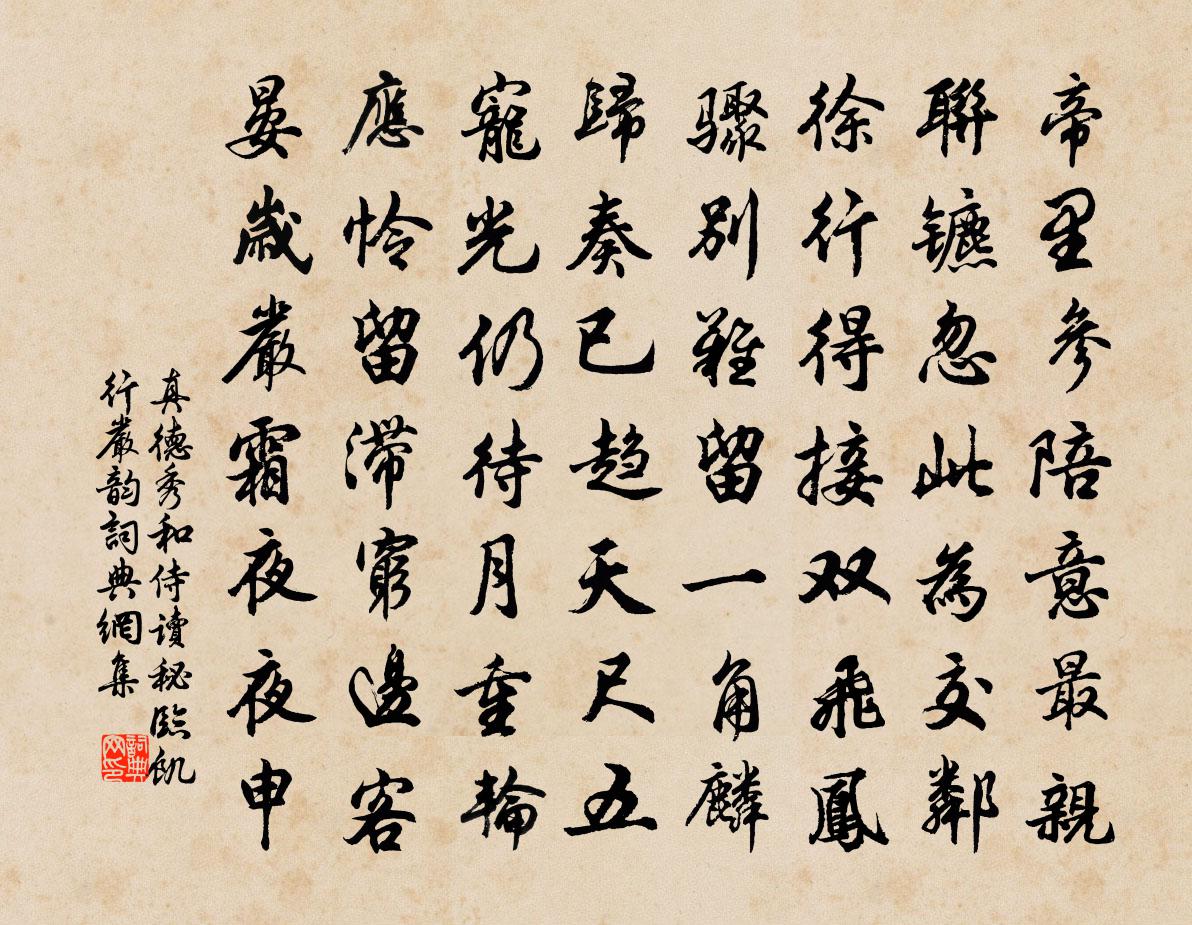 帝里參陪意最親
聯镳忽此為交鄰
徐行得接双飛鳳
驟別難留一角麟
歸奏已趋天尺五
寵光仍待月重輪
應怜留滞窮邊客
晏歲嚴霜夜夜申
真德秀和侍讀秘臨飢
行嚴韵詞典網集
詞典网印